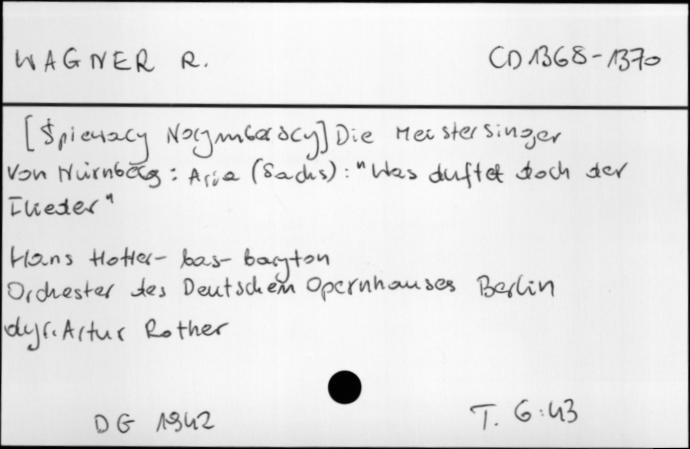 WAGNER R.
CD 1368-1370
[Śpiewacy Norymberscy] Die Meistersinger
von Nürnberg: Aria (Sachs): "Was duftet doch der
Flieder"
Hans Hotter - bas-baryton
Orchester des Deutschen Opernhauses Berlin
dyr. Artur Rother
DG 1942
T. 6:43